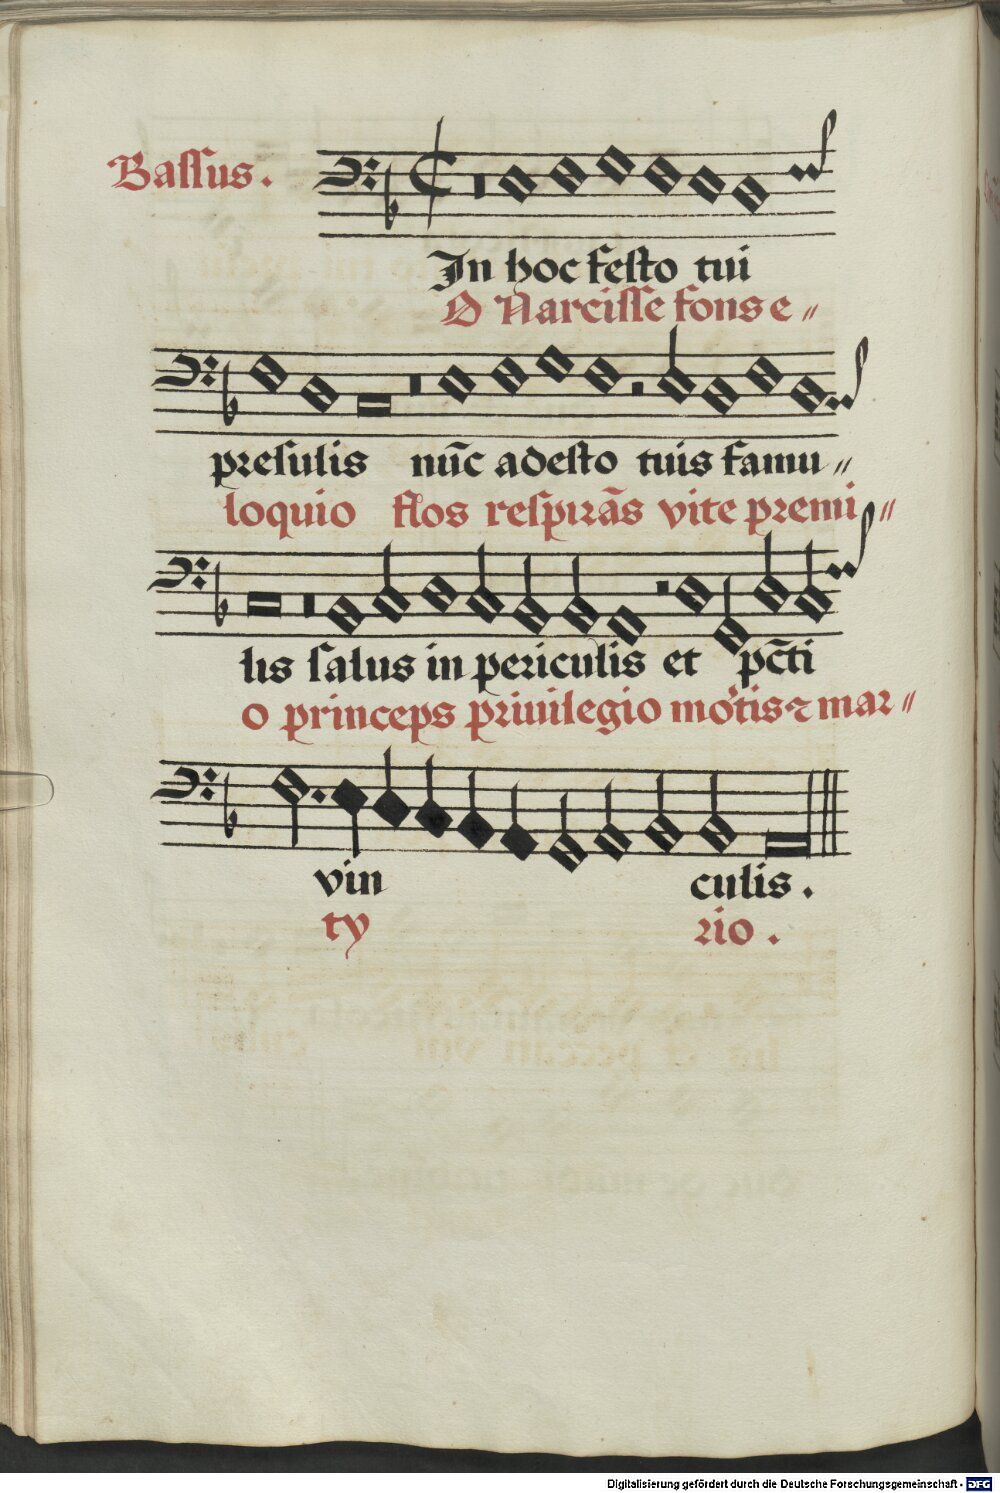 Bassus.
In hoc festo tui
O Narcisse fons e〃
presulis nūc adesto tuis famu〃
loquio flos respirās vite premi〃
lis salus in periculis et pc̄ti
o princeps priuilegio mor̉tis ⁊ mar〃
vin culis.
ty rio.
Digitalisierung gefördert durch die Deutsche Forschungsgemeinschaft - DFG